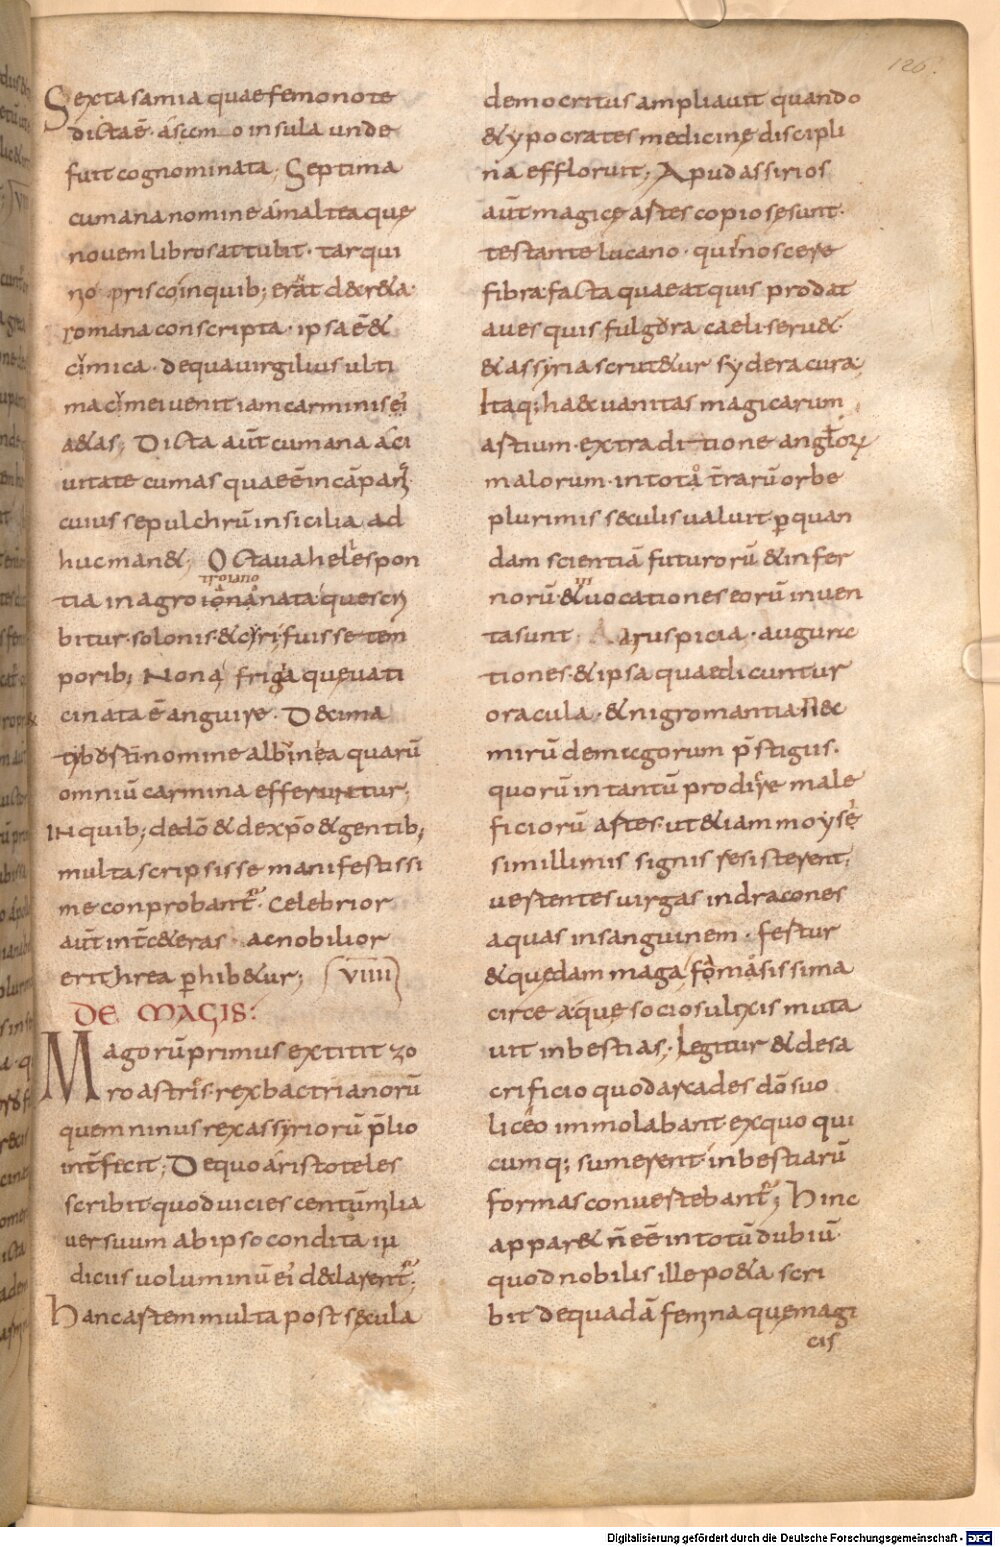 126.
Sexta samia quae femonote
dicta ē· a sam o insula unde
fuit cognominata; Septima
cumana nomine amalteaque
novem libros attulit· tarqui
no prisco in quib; erant decreta
romana conscripta· ipsa ē &
cimica· de qua virgilius ulti
ma cimei venit iam carminis ei
aetas; Dicta aūt cumana a ci
vitate cumas quae ē in cāpania·
cuius sepulchrū in sicilia ad
huc man&; Octava helespon
troiano
tia in agro nata· que scri
bitur· solonis & ciri fuisse tem
porib; Nona frigia que vati
cinata ē anguire· Decima
tyburtina nomine albinea quarū
omniū carmina efferuntur;
IN quib; de dō & de xp̄o & gentib;
multa scripsisse manifestissi
me conprobantur· Celebrior
aūt int ceteras· ac nobilior
erithrea phib&ur; VIIII
DE MAGIS:
Magorū primus extitit zo
roastris· rex bactrianorū
quem ninus rex assyriorū p̄lio
int̄fecit; De quo aristoteles
scribit quod vicies centū milia
versuum ab ipso condita in
diciis voluminū ei declarentur;
Hanc artem multa post secula
democritus ampliavit quando
& ypocrates medicine discipli
na effloruit; Apud assirios
aūt magice artes copiose sunt·
testante lucano· quis noscere
fibra facta queat quis prodat
aves quis fulgora caeli serv&·
& assyria scrut&ur sydera cura;
Itaq; haec vanitas magicarum
artium· ex traditione anglorum
malorum· in toto t̄rarū orbe
plurimis seculis valuit p quan
dam scientiā futurorū & infer
norū & invocationes eorū inven
ta sunt· Aruspicia· augura
tiones· & ipsa quae dicuntur
oracula· & nigromantia· Nec
mirū de magorum p̄stigiis·
quorū in tantū prodiere male
ficiorū artes· ut &iam moysé
simillimis signis resisterent;
vertentes virgas in dracones
aquas in sanguinem· fertur
& quedam maga famosissima
circe aque socios ulixis muta
vit in bestias· Legitur & de sa
crificio quod arcades dō suo
liceo immolabant ex quo qui
cumq; sumerent· in bestiarū
formas convertebantur; Hinc
appar& n̄ eē in totū dubiū·
quod nobilis ille po&a scri
bit de quadā femina que magi
cis
Digitalisierung gefördert durch die Deutsche Forschungsgemeinschaft - DFG